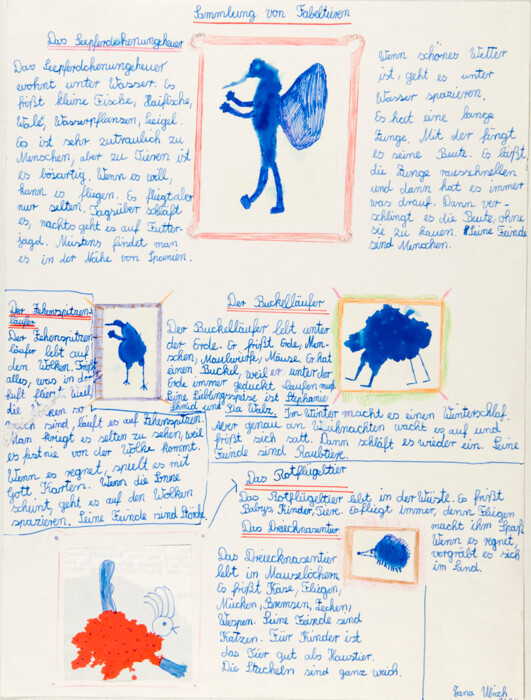 Sammlung von Fabeltieren
Das Seepferdchenungeheuer
Das Seepferdchenungeheuer
wohnt unter Wasser. Es
frißt kleine Fische, Haifische,
Wale, Wasserpflanzen, Seeigel.
Es ist sehr zutraulich zu
Menschen, aber zu Tieren ist
es bösartig. Wenn es will,
kann es fliegen. Es fliegt aber
nur selten. Tagsüber schläft
es, nachts geht es auf Futter-
jagd. Meistens findet man
es in der Nähe von Spanien.
Wenn schönes Wetter
ist, geht es unter
Wasser spazieren.
Es hat eine lange
Zunge. Mit der fängt
es seine Beute. Es läßt
die Zunge rausschnellen
und dann hat es immer
was drauf. Dann ver-
schlingt es die Beute, ohne
sie zu kauen. Seine Feinde
sind Menschen.
Der Zehenspitzen-
läufer
Der Zehenspitzen
läufer lebt auf
den Wolken. Frißt
alles, was in der
Luft fliegt. Weil
die Wolken so
weich sind, läuft es auf Zehenspitzen.
Man kriegt es selten zu sehen, weil
es fast nie von der Wolke kommt.
Wenn es regnet, spielt es mit
Gott Karten. Wenn die Sonne
scheint, geht es auf den Wolken
spazieren. Seine Feinde sind Störche.
Der Buckelläufer
Der Buckelläufer lebt unter
der Erde. Er frißt Erde, Men-
schen, Maulwürfe, Mäuse. Er hat
einen Buckel, weil er unter der
Erde immer geduckt laufen muß.
Seine Lieblingsspeise ist Stephanie
Schmid und Pia Walz. Im Winter macht es einen Winterschlaf.
Aber genau an Weihnachten wacht es auf und
frißt sich satt. Dann schläft es wieder ein. Seine
Feinde sind Raubtiere.
Das Rotflügeltier
Das Rotflügeltier lebt in der Wüste. Es frißt
Babys, Kinder, Tiere. Es fliegt immer, denn Fliegen
macht ihm Spaß.
Wenn es regnet,
vergräbt es sich
im Sand.
Das Dreiecknasentier
Das Dreiecknasentier
lebt in Mauselöchern.
Es frißt Käse, Fliegen,
Mücken, Bremsen, Zecken,
Wespen. Seine Feinde sind
Katzen. Für Kinder ist
das Tier gut als Haustier.
Die Stacheln sind ganz weich.
Jana Ulrich